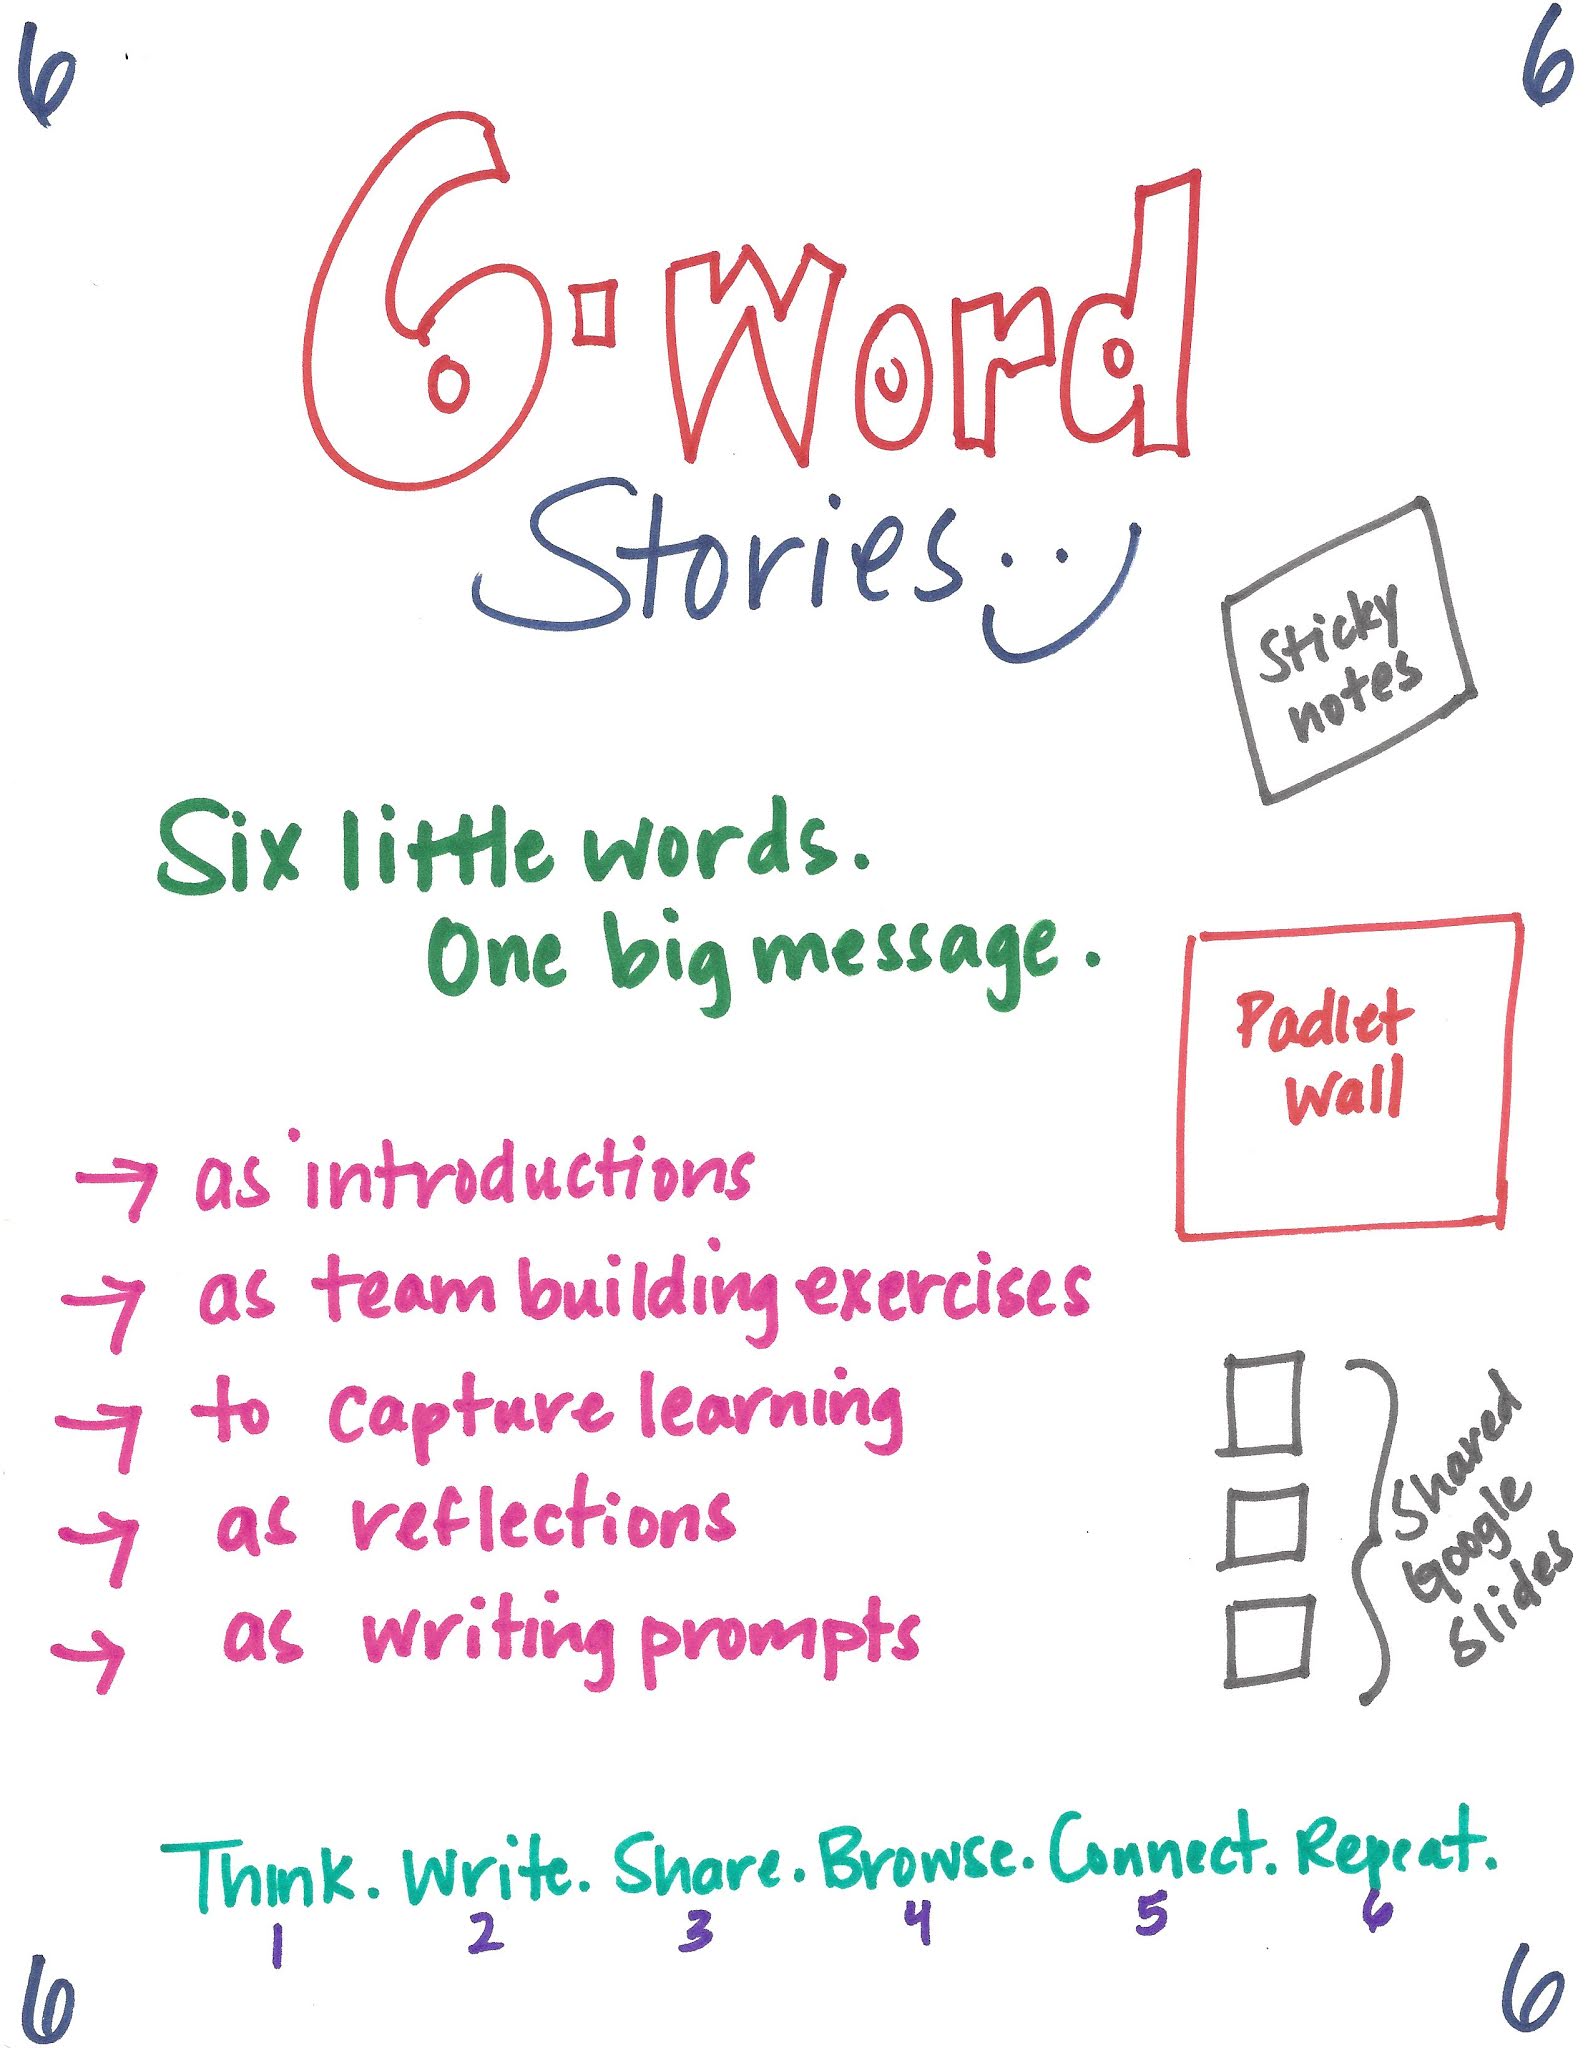 6
6
6-Word
Stories
Sticky
notes
Six little words.
One big message.
Padlet
Wall
→ as introductions
→ as team building exercises
→ to capture learning
→ as reflections
→ as writing prompts
Shared
Google
Slides
Think. Write. Share. Browse. Connect. Repeat.
1 2 3 4 5 6
6
6